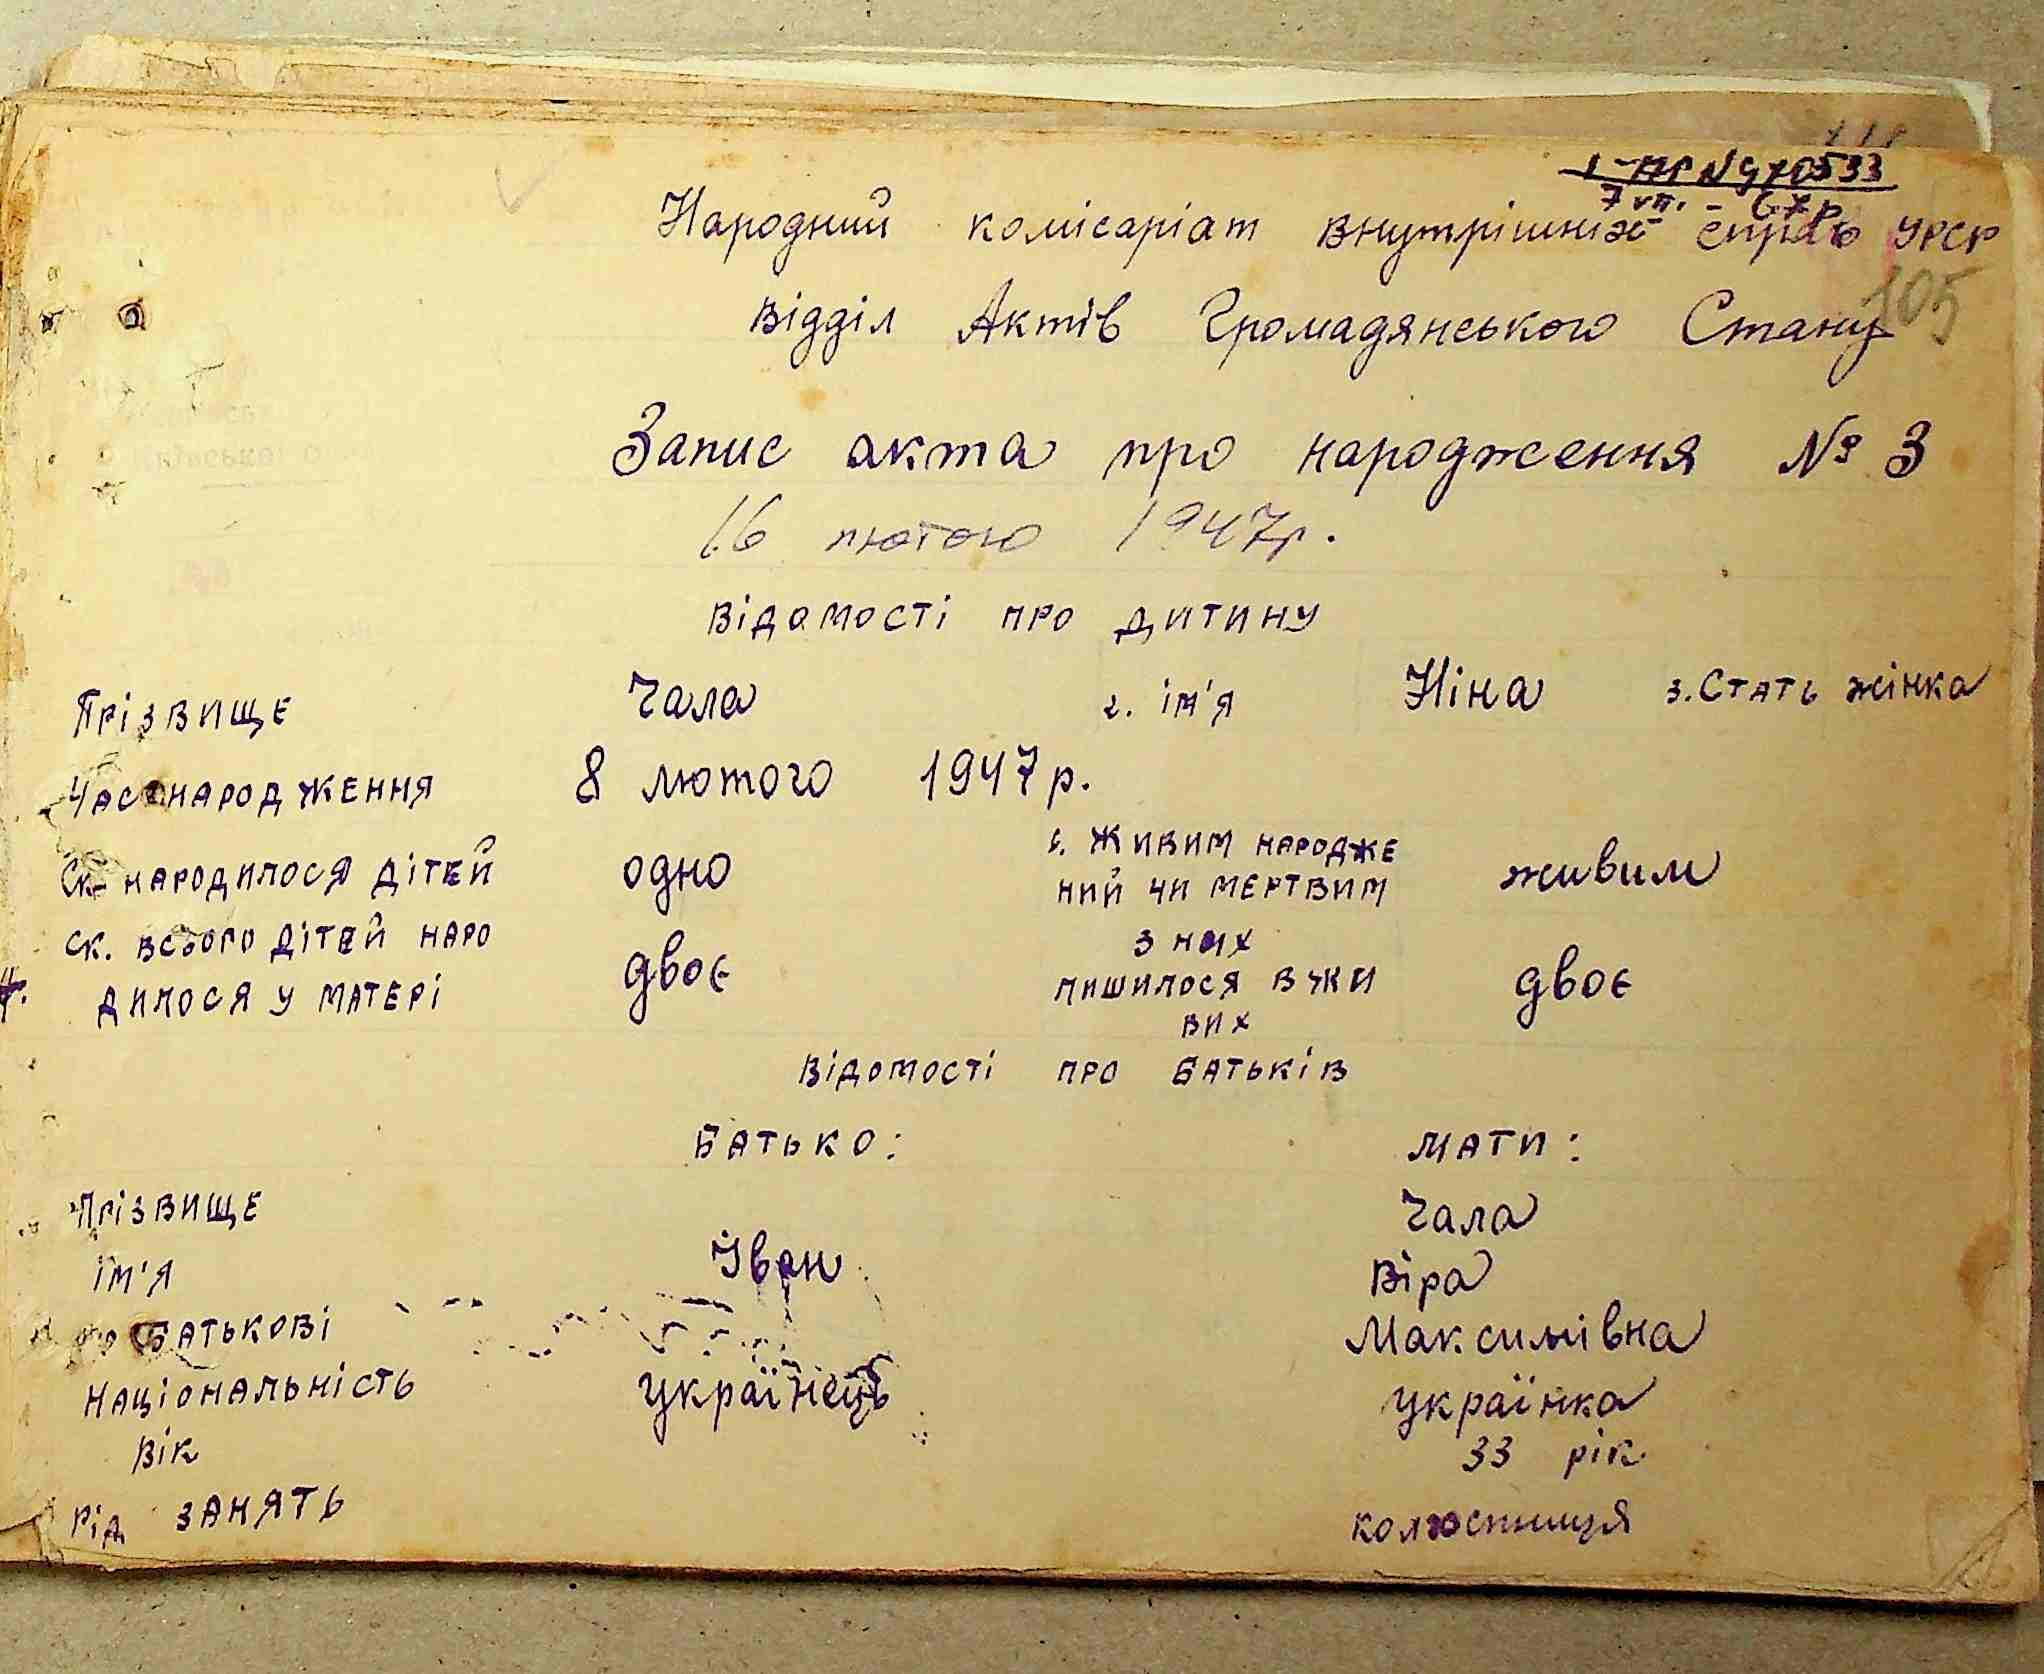 I-АП №470533
7 VII. - 67р.
Народний комісаріат внутрішніх справ УРСР
105
Відділ Актів Громадянського Стану
Запис акта про народження № 3
16 лютого 1947р.
Відомості про дитину
Прізвище Чала 2. ім'я Ніна 3. Стать жінка
Час народження 8 лютого 1947 р.
Ск. народилося дітей одно 6. Живим народже
ний чи мертвим живим
7. ск. всього дітей наро
дилося у матері двоє з них
лишилося в жи
вих двоє
Відомості про батьків
Батько: Мати:
Прізвище Чала
ім'я Іван Віра
по батькові Максимівна
національність українець українка
вік 33 рік
рід занять колгостниця